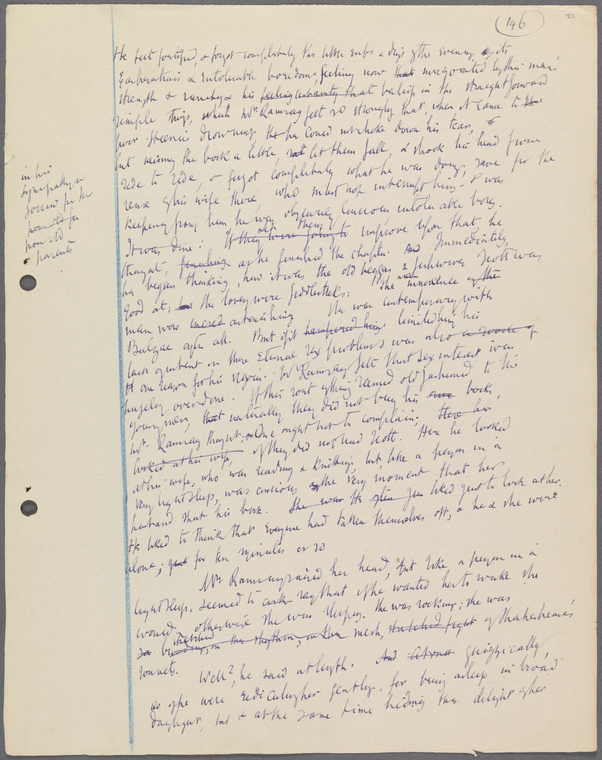 146
21
He felt fortified, & forgot completely the little rubs & digs of the evening, & its
exasperations & intolerable boredoms, feeling now that invigorated by this man's
strength & sanity & his feeling certainty that beliefs in the straightforward
simple things, which Mr Ramsay felt so strongly that when it came to the
poor Steenie's drowning that he could not choke down his tears, &
but raising the book a little, let them fall & shook his head from
side to side, & forgot completely what he was doing, save for the
sense of his wife there, who must not interrupt him: & was
keeping from him he was obscurely conscious intolerable
in his
sympathy &
sorrow for the
for
poor old
parents
It was done. If they were going to improve upon that he
thought, finishing as he finished the chapter. And Immediately
he began thinking, how it was the old beggars & fishwives Scott was
good at; the lovers were fiddlesticks: the innocence of the
man was astonishing He was contemporary with
Balzac after all. But if it hampered him limited by his
lack of interest in these eternal sex problems was also a source of
one reason for his vigour. Mr Ramsay felt that sex interest was
hugely overdone. If this sort of thing seemed old fashioned to the
young men, that naturally they did not buy his own books,
Mr. Ramsay thought; & one ought not to complain, there he
looked at his wife, if they did not read Scott. Here he looked
at his wife, who was reading & knitting, but, like a person in a
very light sleep, was conscious of the very moment that her
husband shut his book. She was He liked just to look at her.
He liked to think that everyone had taken themselves off, & he & she were
alone; for ten minutes or so
Mrs Ramsay raised her head, but like a person in a
light sleep. seemed to say that if he wanted her to wake she
would, otherwise she was sleepy. She was rocking; she was
brooding, on the rhythm, in the mesh, stretched of Shakespeare's
sonnets. Well?, he said at length. And quizzically,
as if he were ridiculing her gently for being asleep in broad
daylight, but & at the same time hiding the delight of her